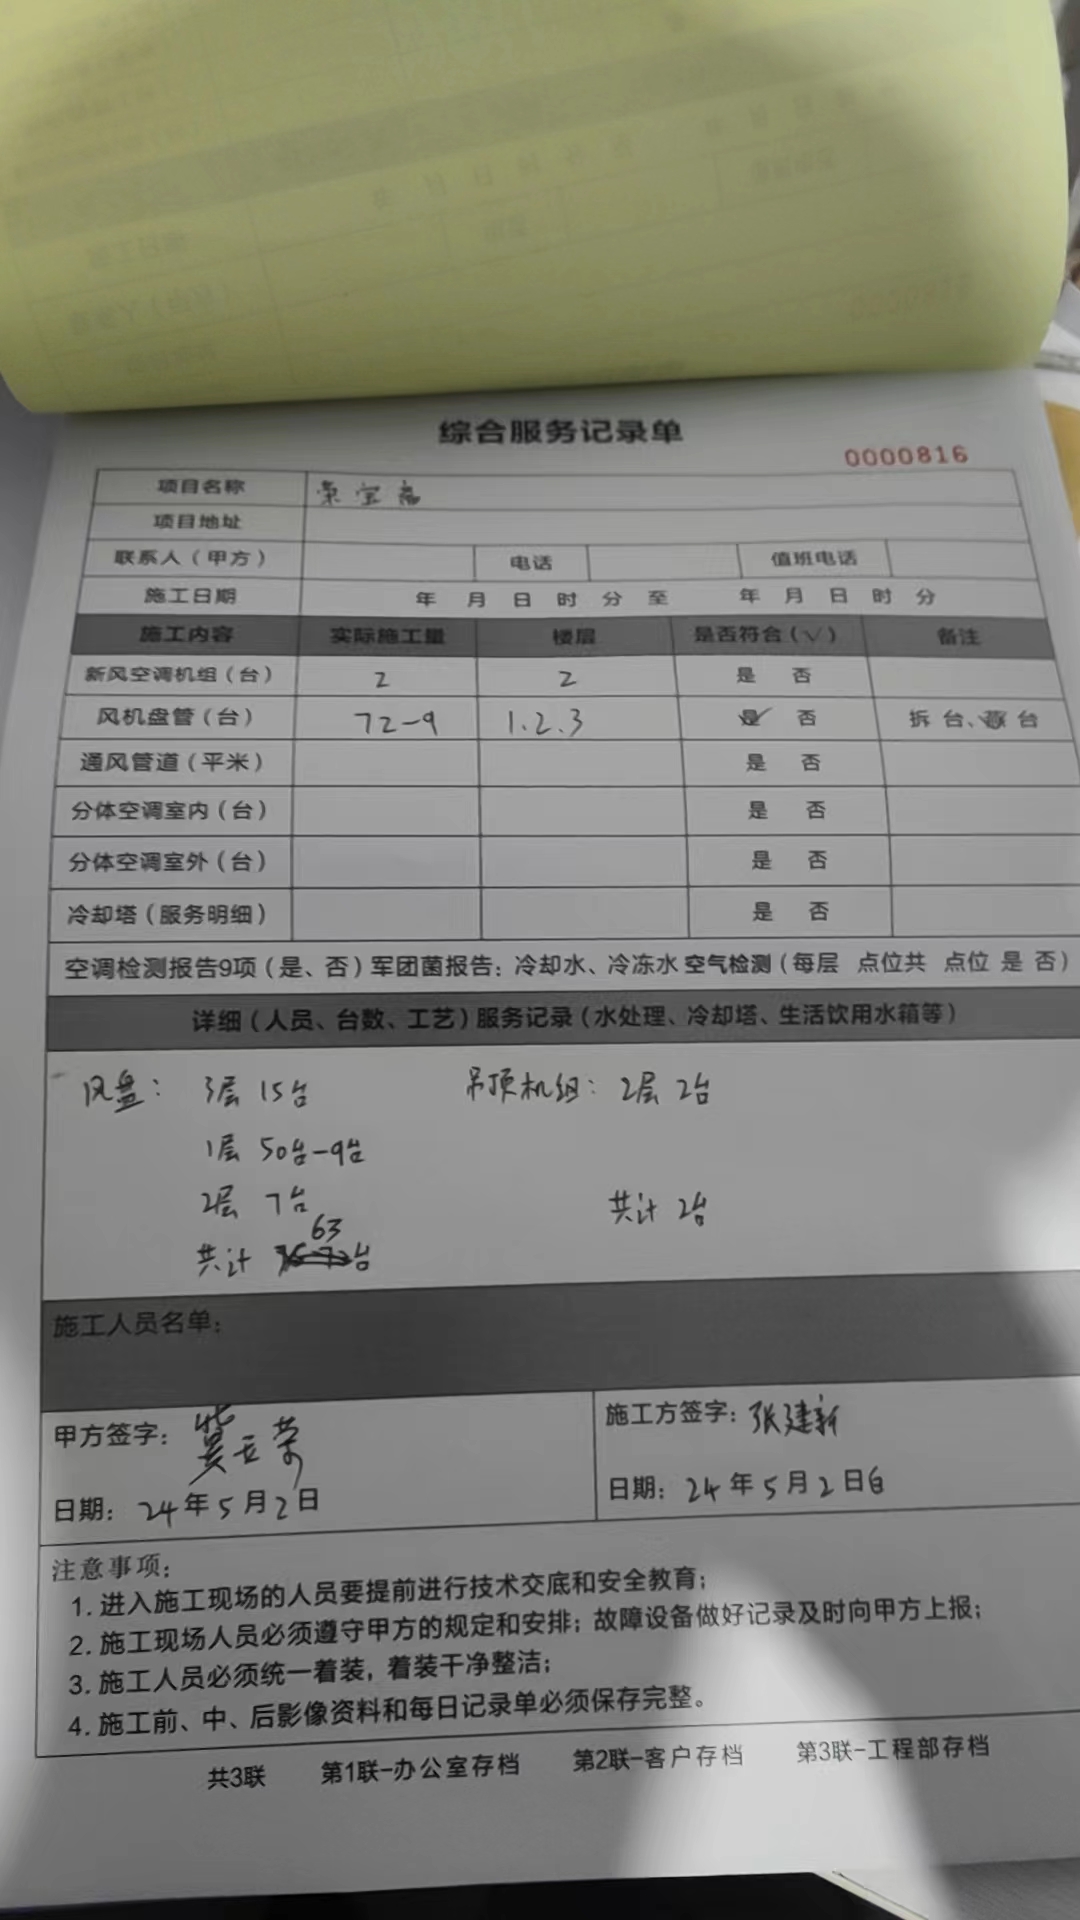 综合服务记录单
0000816
项目名称 荣宝斋
项目地址
联系人（甲方） 电话 值班电话
施工日期 年 月 日 时 分 至 年 月 日 时 分
施工内容 实际施工量 楼层 是否符合（√） 备注
新风空调机组（台） 2 2 是 否
风机盘管（台） 72-9 1.2.3 是✓ 否 拆 台、 台
通风管道（平米） 是 否
分体空调室内（台） 是 否
分体空调室外（台） 是 否
冷却塔（服务明细） 是 否
空调检测报告9项（是、否）军团菌报告：冷却水、冷冻水 空气检测（每层 点位共 点位 是 否）
详细（人员、台数、工艺）服务记录（水处理、冷却塔、生活饮用水箱等）
风盘： 3层 15台 吊顶机组：2层 2台
1层 50台-9台
2层 7台 共计 2台
63
共计 台
施工人员名单：
甲方签字： 施工方签字：张建新
日期：24年5月2日 日期：24年5月2日
注意事项：
1. 进入施工现场的人员要提前进行技术交底和安全教育；
2. 施工现场人员必须遵守甲方的规定和安排；故障设备做好记录及时向甲方上报；
3. 施工人员必须统一着装，着装干净整洁；
4. 施工前、中、后影像资料和每日记录单必须保存完整。
共3联 第1联-办公室存档 第2联-客户存档 第3联-工程部存档